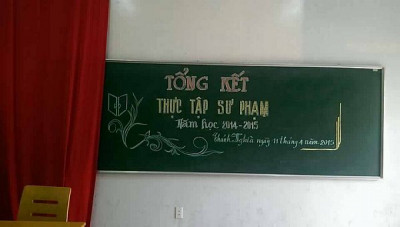 TỔNG KẾT
THỰC TẬP SƯ PHẠM
Năm học 2014-2015
Khánh Nghĩa ngày 11 tháng 4 năm 2015